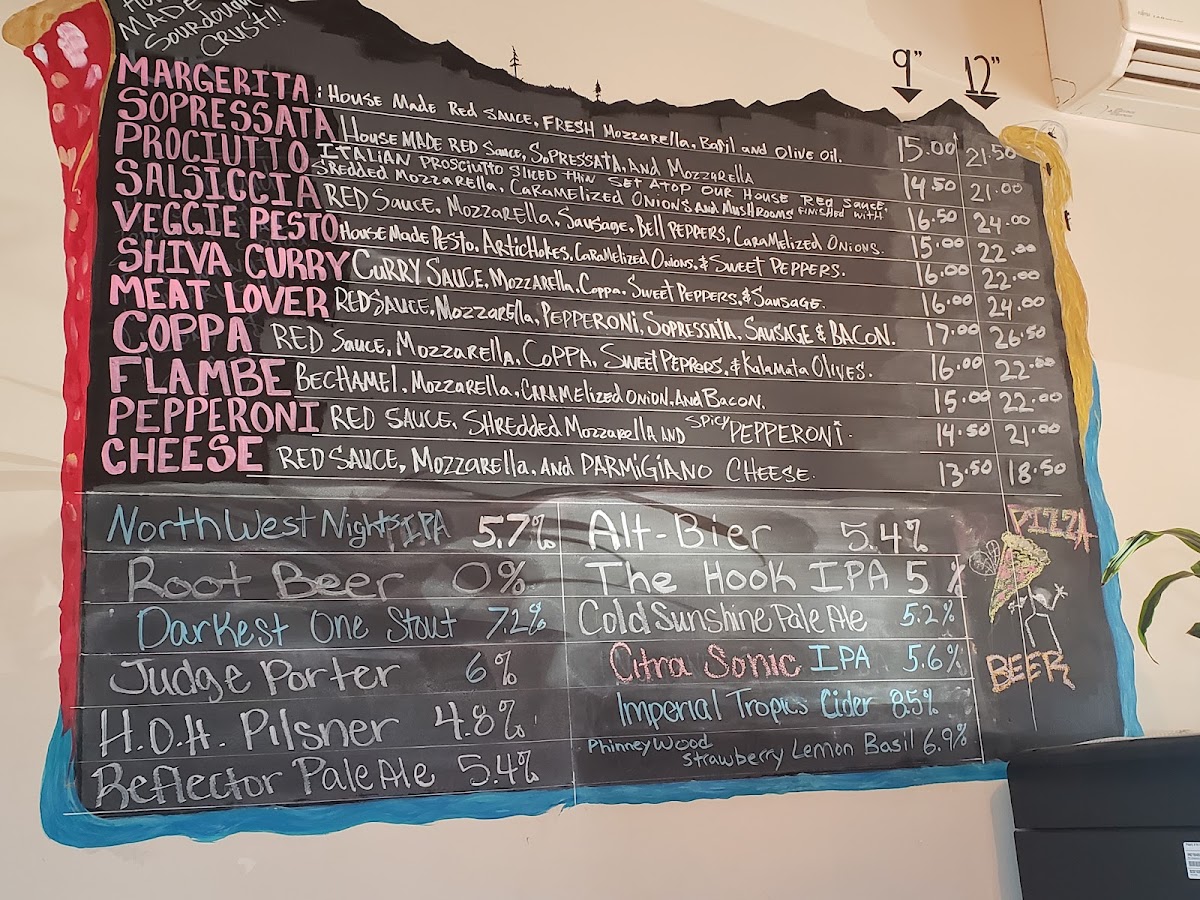 MADE
SourDough
CRUST!!
9" 12"
MARGERITA : House Made Red Sauce, FRESH Mozzarella, Basil and Olive Oil. 15.00 21.50
SOPRESSATA House MADE RED Sauce, SOPRESSATA, And Mozzarella 14.50 21.00
PROCIUTTO ITALIAN PROSCIUTTO SLICED THIN SET ATOP OUR HOUSE RED SAUCE,
SREDDED MOZZARELLA, CARAMELIZED ONIONS AND MUSHROOMS FINISHED WITH 16.50 24.00
SALSICCIA RED Sauce, Mozzarella, Sausage, Bell PEPPERS, CARAMElized Onions. 15.00 22.00
VEGGIE PESTO House Made Pesto, Artichokes, Caramelized Onions, & Sweet Peppers. 16.00 22.00
SHIVA CURRY CURRY SAUCE, Mozzarella, Coppa, Sweet Peppers, & Sausage. 16.00 24.00
MEAT LOVER RED SAUCE, Mozzarella, PEPPERONI, SOPRESSATA, SAUSAGE & BACON. 17.00 26.50
COPPA RED Sauce, Mozzarella, COPPA, Sweet Peppers, & Kalamata Olives. 16.00 22.00
FLAMBE BECHAMEl, Mozzarella, CARAMElized Onion, And Bacon. 15.00 22.00
PEPPERONI RED SAUCE, SHREdded Mozzarella AND SPICY PEPPERONI. 14.50 21.00
CHEESE RED SAUCE, Mozzarella, AND PARMIGIANO CHEESE. 13.50 18.50
NorthWest Nights IPA 5.7%
Root Beer 0%
Darkest One Stout 7.2%
Judge Porter 6%
H.O.H. Pilsner 4.8%
Reflector Pale Ale 5.4%
Alt-Bier 5.4%
The Hook IPA 5%
Cold Sunshine Pale Ale 5.2%
Citra Sonic IPA 5.6%
Imperial Tropics Cider 8.5%
PhinneyWood
Strawberry Lemon Basil 6.9%
PIZZA
BEER